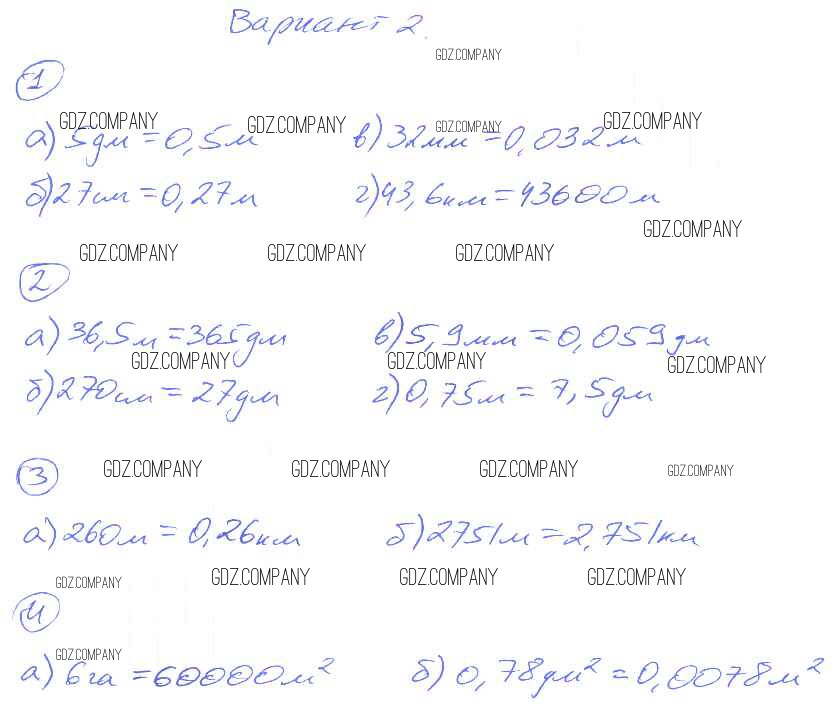 Вариант 2.
GDZ.COMPANY
1
GDZ.COMPANY GDZ.COMPANY GDZ.COMPANY GDZ.COMPANY
а) 5дм = 0,5м в) 32мм = 0,032м
б) 27см = 0,27м г) 43,6км = 43600м
GDZ.COMPANY
GDZ.COMPANY GDZ.COMPANY GDZ.COMPANY
2
а) 36,5м = 365дм в) 5,9мм = 0,059дм
GDZ.COMPANY GDZ.COMPANY GDZ.COMPANY
б) 270см = 27дм г) 0,75м = 7,5дм
3 GDZ.COMPANY GDZ.COMPANY GDZ.COMPANY GDZ.COMPANY
а) 260м = 0,26км б) 2751м = 2,751км
GDZ.COMPANY GDZ.COMPANY GDZ.COMPANY GDZ.COMPANY
4
GDZ.COMPANY
а) 6га = 60000м² б) 0,78дм² = 0,0078м²